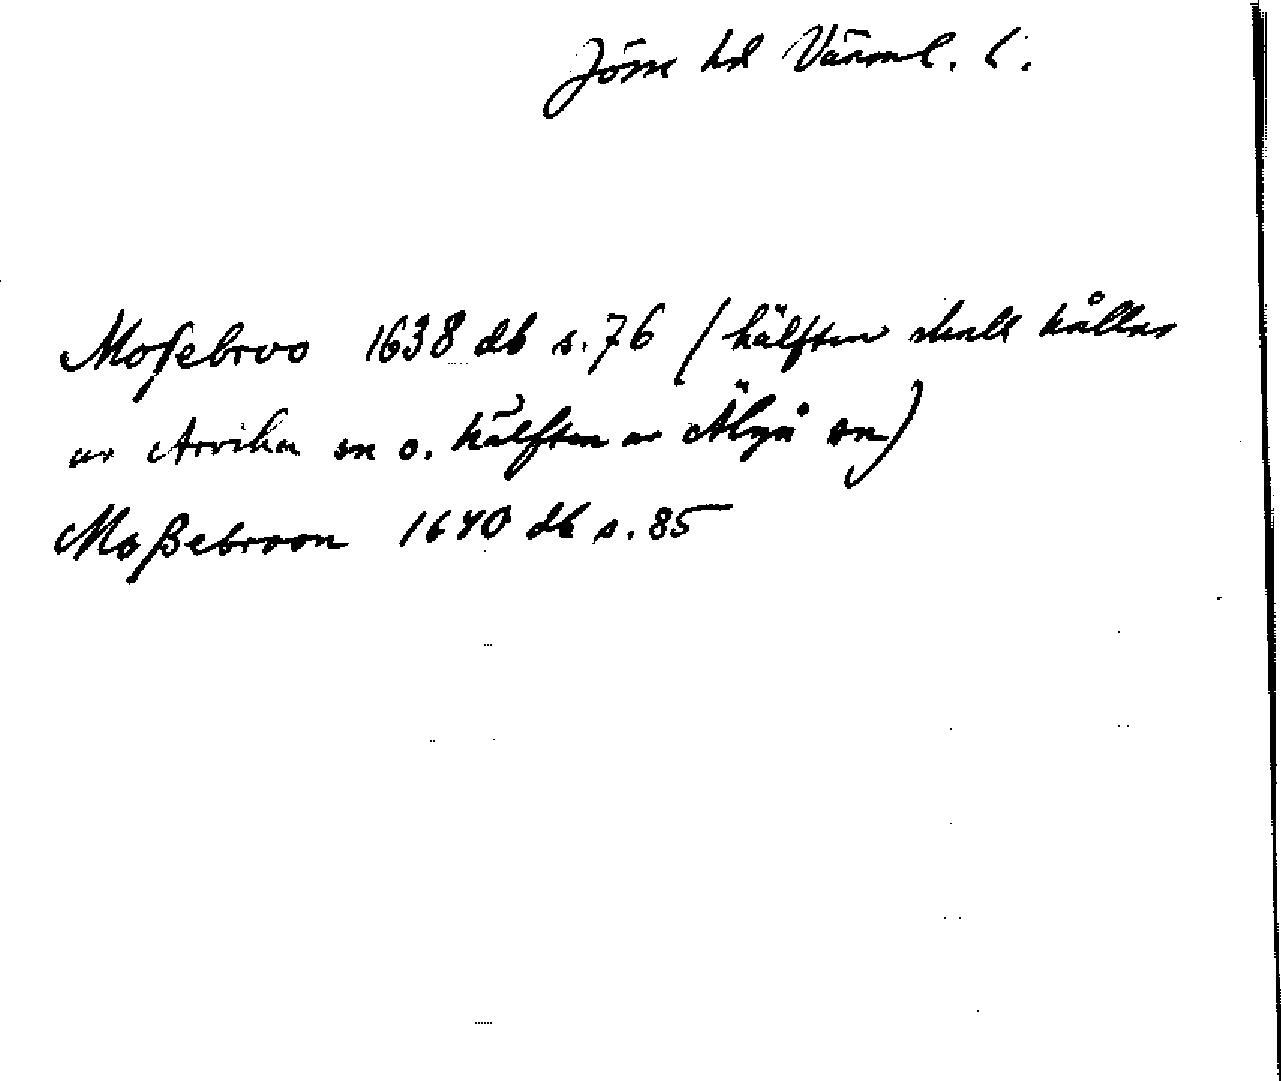 Jösse hd Värml. l.
Moßebroo 1638 db s. 76 (hälften skall hållas
av Arvika sn o. hälften av Älgå sn)
Moßebroon 1640 db s. 85